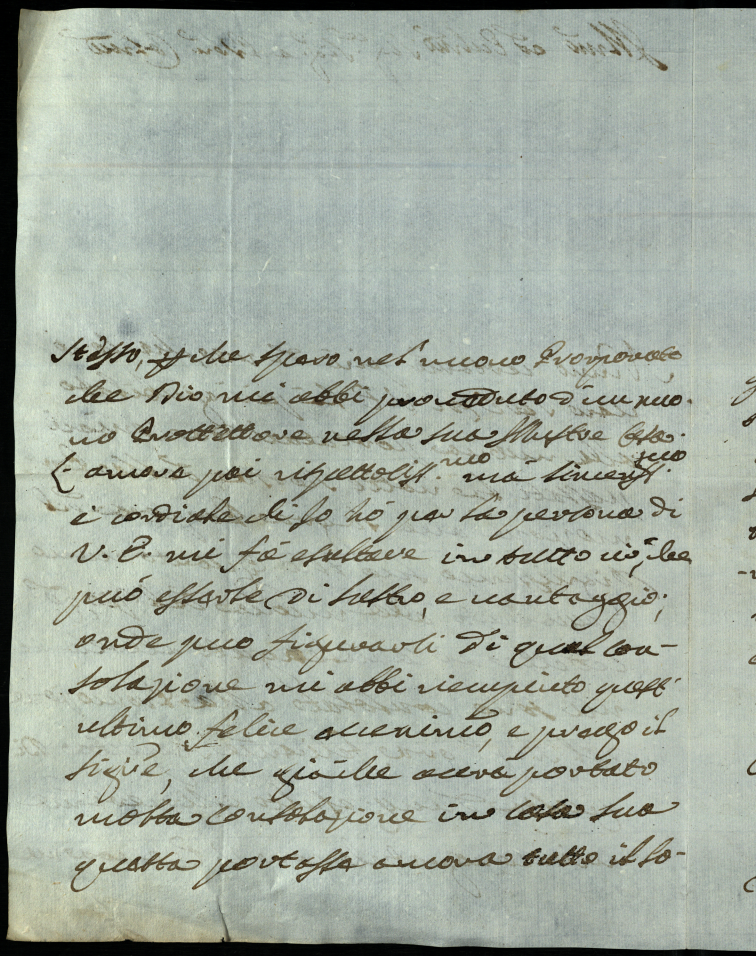 stesso, che spero nel nuovo Porporato
che Dio mi abbi proveduto d'un nuo-
vo Prottettore nella sua Illustre Casa.
L'amore poi rispettosiss.mo mà sinceriss.mo
e cordiale che Io hò per la persona di
V. E. mi fà esultare in tutto ciò, che
può esserle di lustro, e vantaggio;
onde puo figurarsi di qual con-
solazione mi abbi riempiuto quest'
ultimo felice avenim.to, e prego il
Sig.re, che già che avera portato
molta consolazione in casa sua
questa portasse ancora tutto il so-